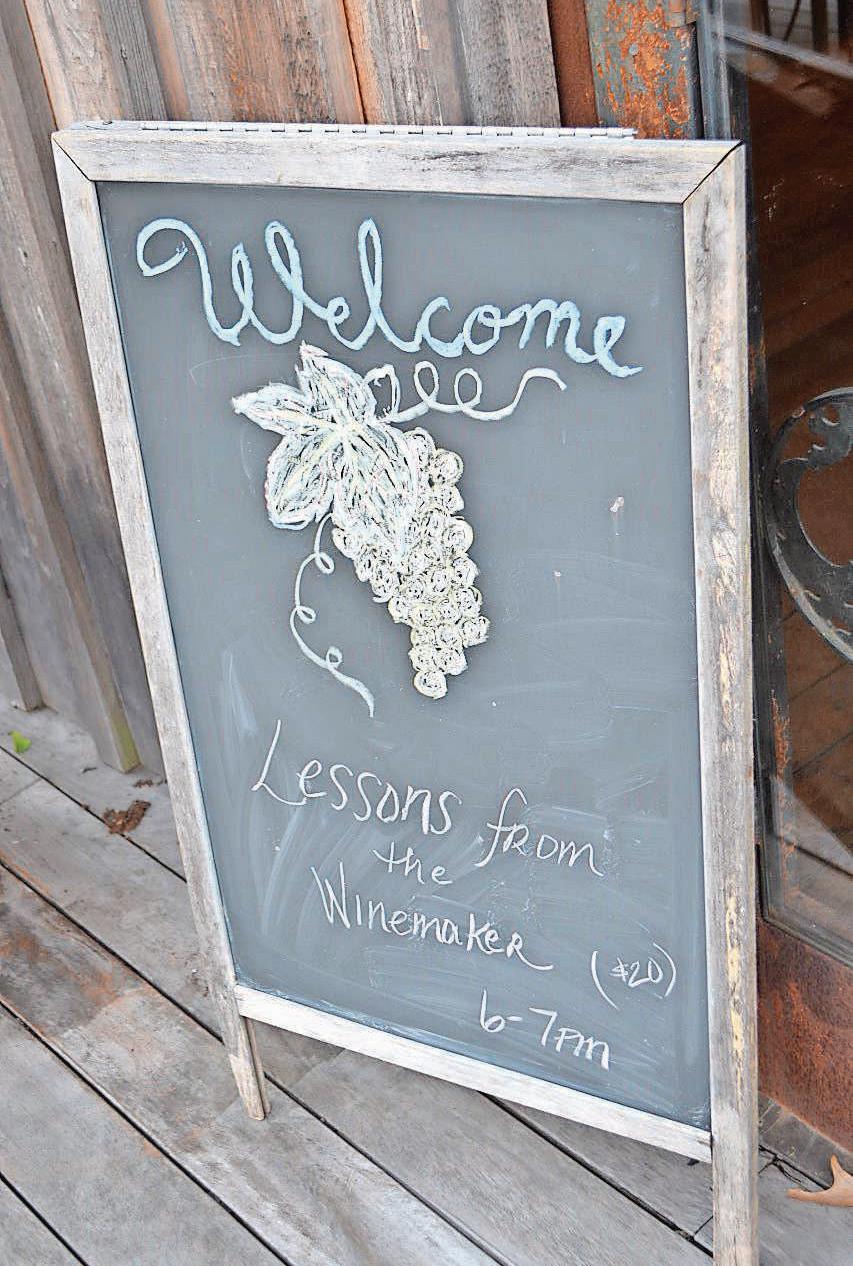 Welcome
Lessons from
the
Winemaker ($20)
6-7pm